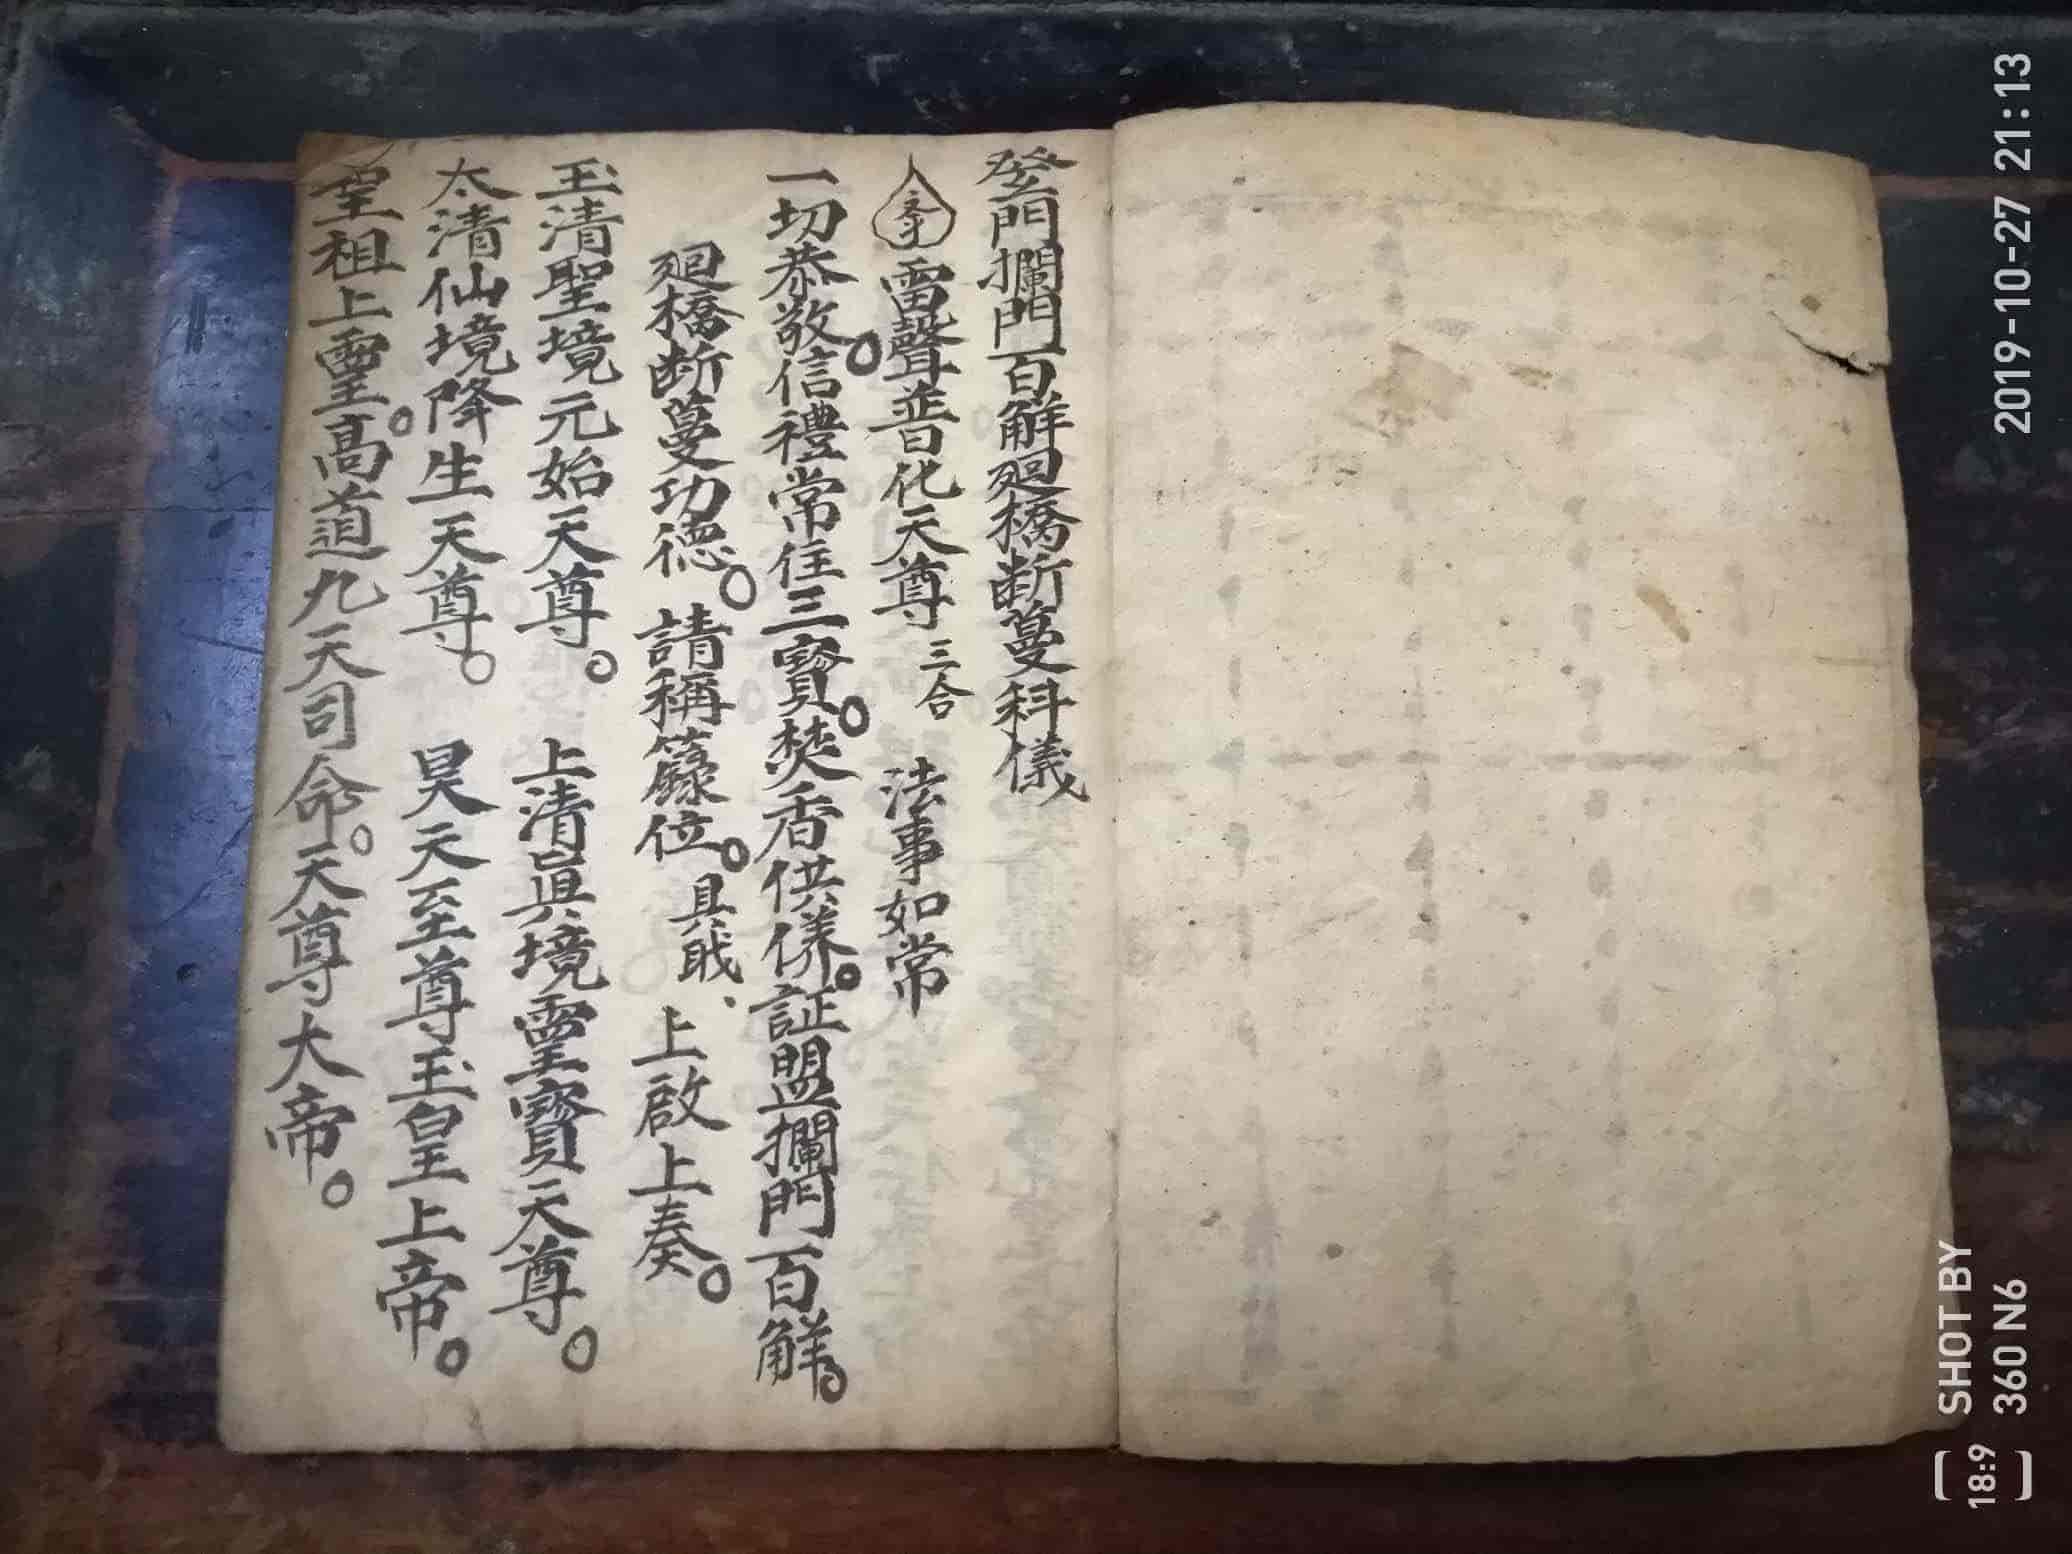 登門攔門百解廻橋斷蔓科儀
雷聲普化天尊 三合 法事如常
一切恭敬信禮常住三寶。焚香供養。証盟攔門百解。
廻橋斷蔓功德。請稱籙位。具戢、上啟上奏。
玉清聖境元始天尊。 上清真境靈寶天尊。
太清仙境降生天尊。 昊天至尊玉皇上帝。
聖祖上靈高道九天司命。天尊大帝。
2019-10-27 21:13
SHOT BY
360 N6
18:9